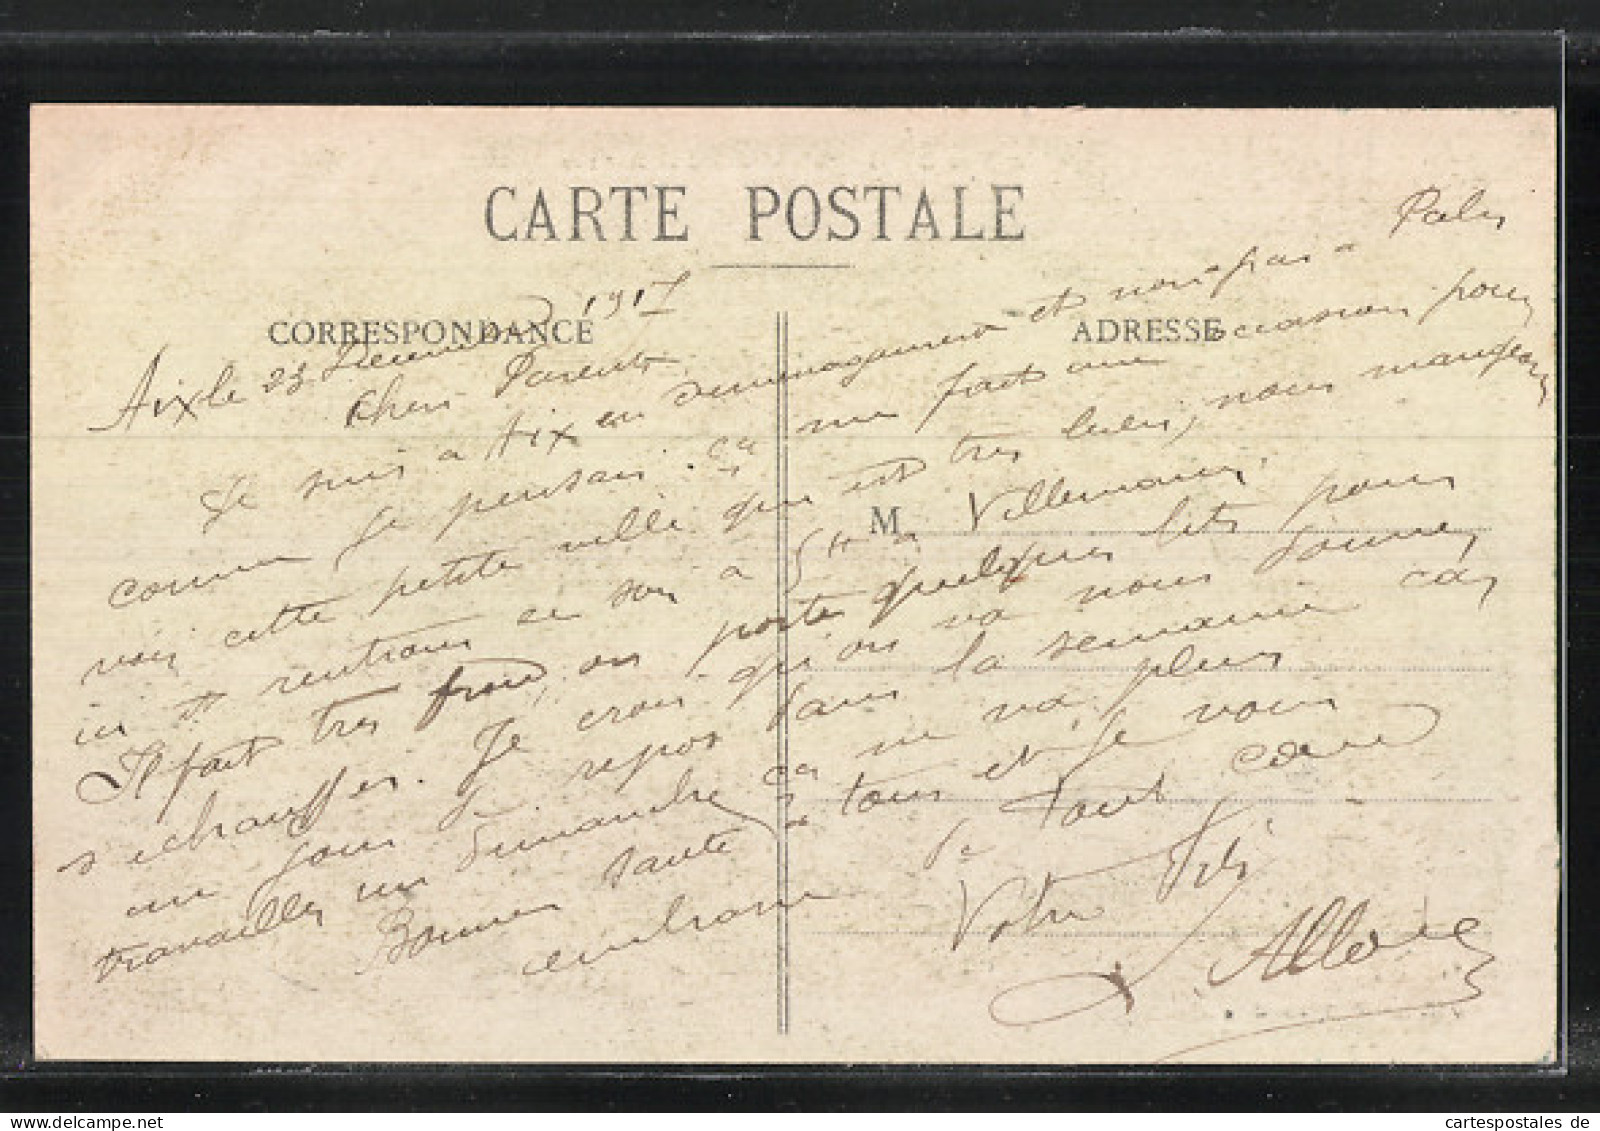 CARTE POSTALE
CORRESPONDANCE
ADRESSE
M
Aix le 23 Decembre 1917
Chers Parents
Je suis a Aix en demenagement et non pas a
comme je pensais. ça me fait une occasion pour
voir cette petite ville qui est tres bien, nous mangeons
ici et rentrons ce soir a Villemaur.
Il fait tres froid, on porte quelques lits pour
s'echauffer. Je crois qu'on va nous donner
un jour de repos dans la semaine car
travailler un dimanche ça ne va plus
Bonne santé a tous et je vous
embrasse de tout cœur
Votre fils
cartespostales.de